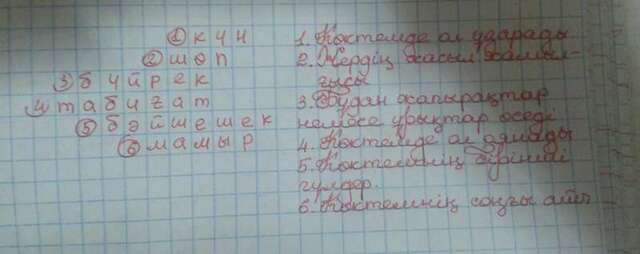 ① к ү н
② ш ө п
③ б ү й р е к
④ т а б и ғ а т
⑤ б ә й ш е ш е к
⑥ м а м ы р
1. Көктемде ол ұзарады
2. Жердің жасыл жамыл-
ғысы
3. Бұдан жапырақтар
немесе ұрықтар өседі
4. Көктемде ол оянады
5. Көктемнің бірінші
гүлдер.
6. Көктемнің соңғы айы